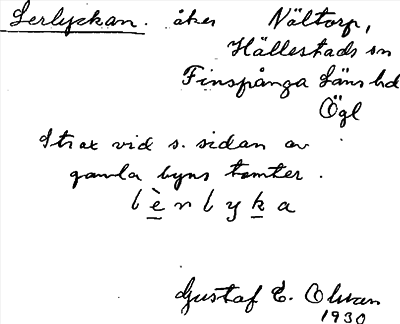 Lerlyckan. åker Nältorp,
Hällestads sn
Finspånga Läns hd
Ögl
Strax vid s. sidan av
gamla byns tomter.
Gustaf E. Olsson
1930